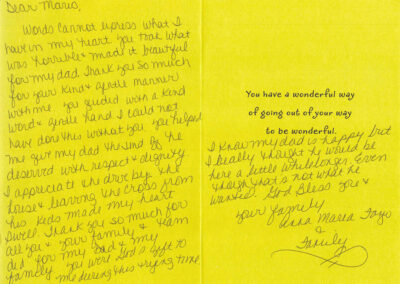 Dear Mario,
Words Cannot express what I
have in my heart you took what
was horrible & made it beautiful
for my dad. Thank you So much
for your kind & gentle manner
with me. you guided with a kind
word & gentle hand. I could not
have don this without you. you helped
me give my dad the end he
deserved with respect & dignity
I appreciate the drive by the
house & leaving the cross from
his kids made my heart
Swell. Thank you so much for
all you & your family & team
did for my Dad & my
family you were God's gift to
me during this trying time.
You have a wonderful way
of going out of your way
to be wonderful.
I know my dad is happy but
I really thought he would be
here a little while longer. Even
though that's not what he
wanted. God Bless you &
your family
Anna Maria
&
Family